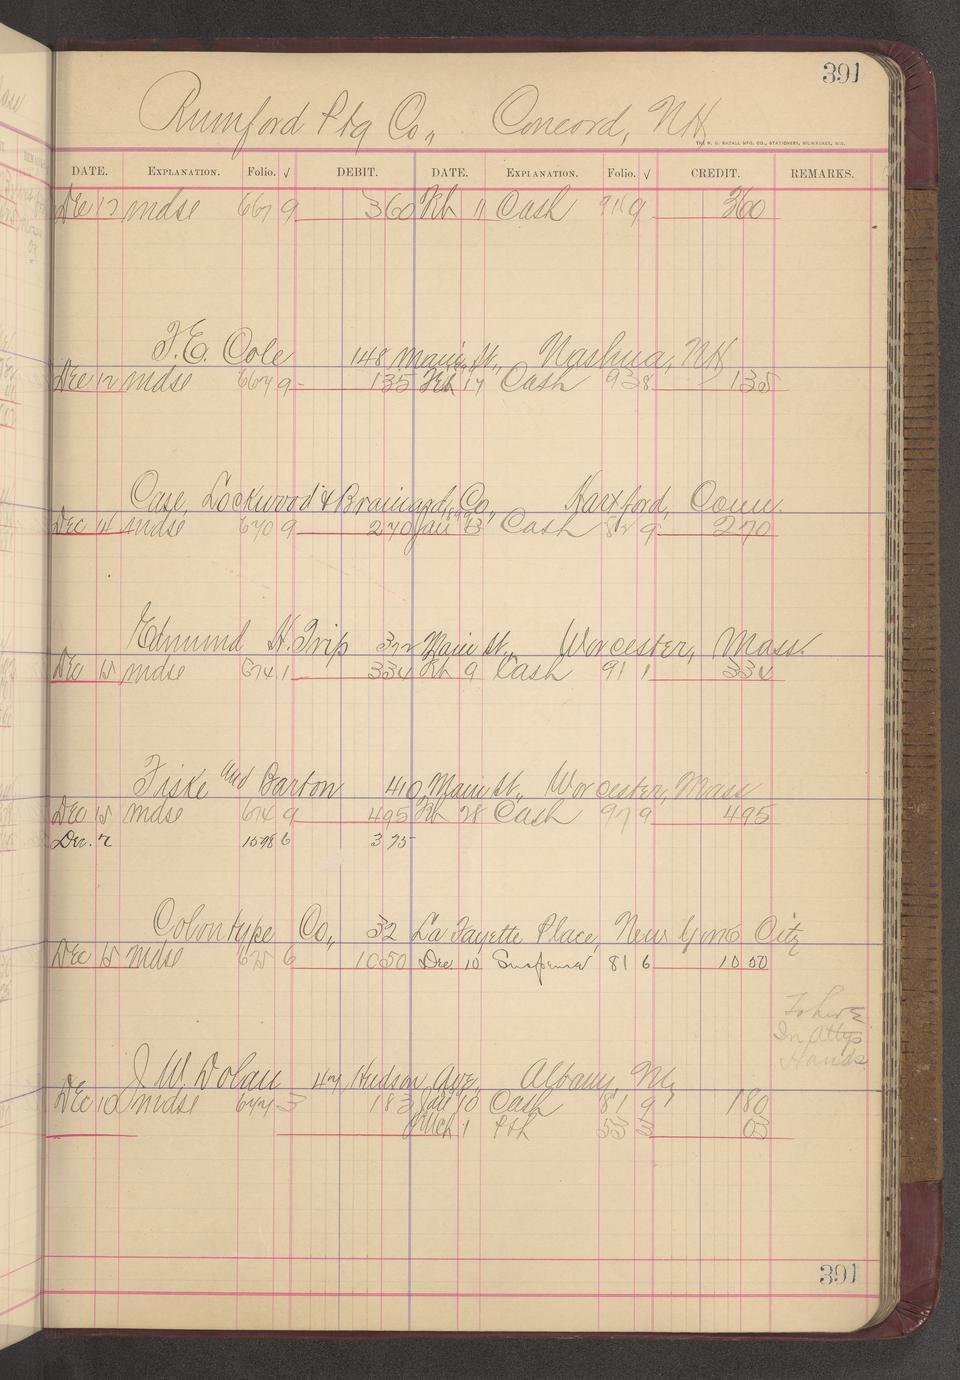 391
Rumford Ptg Co., Concord, NH
THE W. G. RAZALL MFG. CO., STATIONERS, MILWAUKEE, WIS.
DATE. EXPLANATION. Folio. √ DEBIT. DATE. EXPLANATION. Folio. √ CREDIT. REMARKS.
Dec 12 mdse 667 9 360 Feb 11 Cash 916 9 360
F. E. Cole 148 Main St., Nashua, NH
Dec 12 mdse 667 9 135 Feb 17 Cash 93 8 135
Case, Lockwood & Brainard Co., Hartford, Conn.
Dec 14 mdse 670 9 270 Jan 13 Cash 82 9 270
Edmund H. Trip 372 Main St., Worcester, Mass.
Dec 15 mdse 674 1 334 Feb 9 Cash 91 1 334
Fiske and Barton 410, Main St., Worcester, Mass
Dec 15 mdse 674 9 495 Feb 28 Cash 97 9 495
Dec. 2 1598 6 3 75
Colontype Co., 32 La Fayette Place, New York City
Dec 15 mdse 675 6 1050 Dec 10 Suspense 81 6 10 50
In Attys
Hands
J. W. Dolan 47 Hudson Ave., Albany, NY
Dec 10 mdse 677 3 183 Jan 10 Cash 81 9 180
Mch 1 03
391